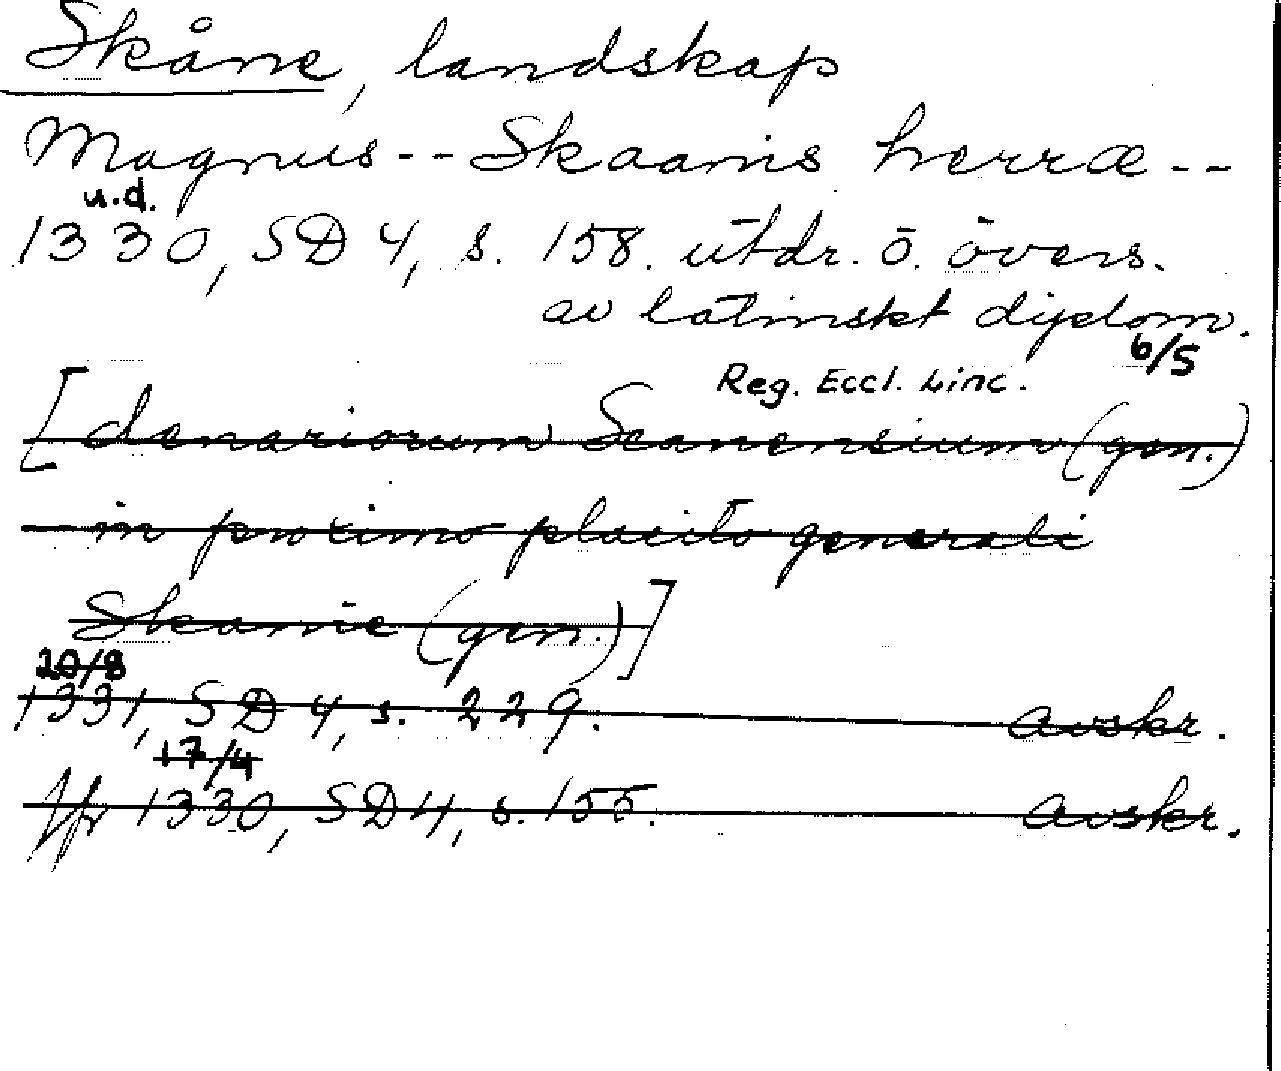 Skåne, landskap
Magnus -- Skaanis herræ --
u.d.
1330, SD 4, s. 158. utdr. ö. övers.
av latinskt diplom.
6/5
Reg. Eccl. Linc.
[denariorum Scanensium (gen.)
in proximo placito generali
Skanie (gen.)]
20/8
1331, SD 4, s. 229. avskr.
17/4
Jfr 1330, SD 4, s. 155. avskr.